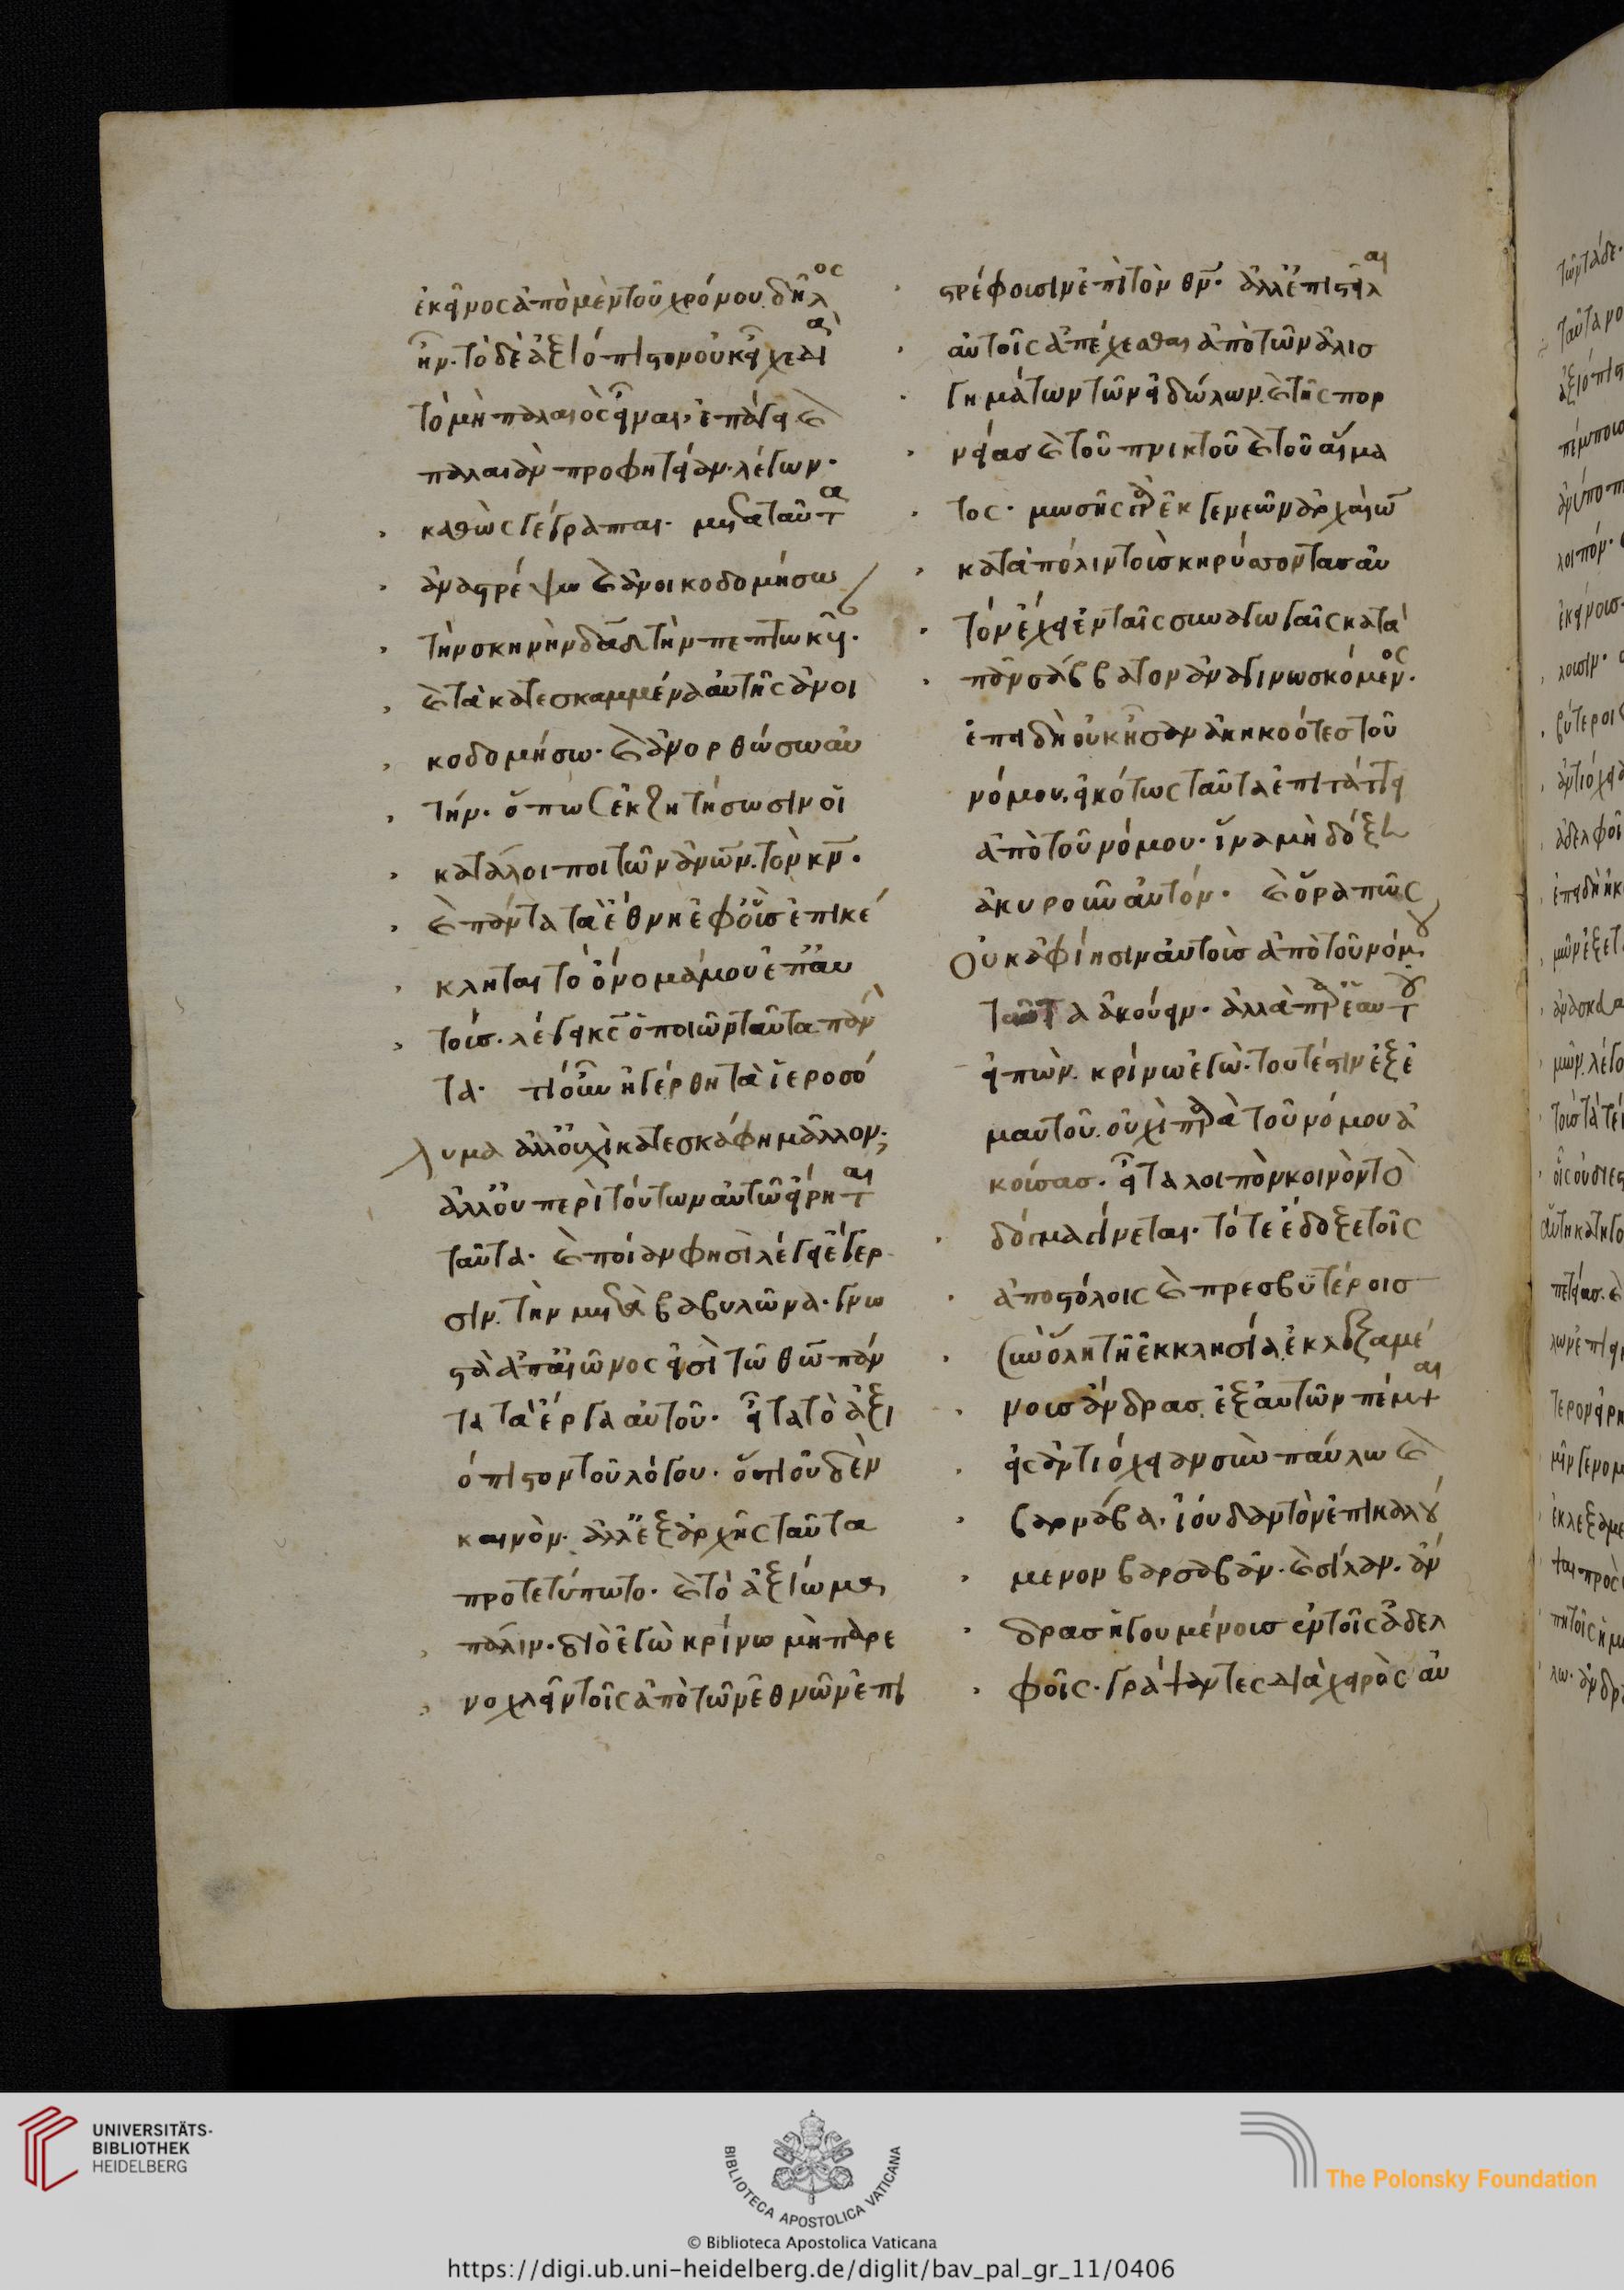 ἐκεῖνος ἀπὸ μὲν τοῦ χρόνου δῆλος
ἦν· τὸ δὲ ἀξιόπιστον οὐκ εἶχε διὰ
τὸ μὴ παλαιὸς εἶναι, ἐπάγει καὶ
παλαιὰν προφητείαν λέγων·
καθὼς γέγραπται· μετὰ ταῦτα
ἀναστρέψω καὶ ἀνοικοδομήσω
τὴν σκηνὴν δαδ τὴν πεπτωκυῖαν·
καὶ τὰ κατεσκαμμένα αὐτῆς ἀνοι
κοδομήσω· καὶ ἀνορθώσω αὐ
τήν· ὅπως ἐκζητήσωσιν οἱ
κατάλοιποι τῶν ἀνων τὸν κν·
καὶ πάντα τὰ ἔθνη ἐφ' οἷς ἐπικέ
κληται τὸ ὄνομά μου ἐπ' αὐ
τοίσ· λέγει κς ὁ ποιῶν ταῦτα πάν
τα· τί οὖν ἠγέρθη τὰ ἱεροσό
λυμα ἀλλ' οὐχὶ κατεσκάφη μᾶλλον;
ἀλλ' οὐ περὶ τούτων αὐτῷ εἴρηται
ταῦτα· καὶ ποίαν φησὶ λέγει ἔγερ
σιν· τὴν μετὰ βαβυλῶνα· γνω
στὰ ἀπ' αἰῶνος ἐστὶ τῷ θω πάν
τα τὰ ἔργα αὐτοῦ· εἶτα τὸ ἀξι
όπιστον τοῦ λόγου· ὅτι οὐδὲν
καινὸν· ἀλλ' ἐξ ἀρχῆς ταῦτα
προτετύπωτο· καὶ τὸ ἀξίωμα
πάλιν· διὸ ἐγὼ κρίνω μὴ παρε
νοχλεῖν τοῖς ἀπὸ τῶν ἐθνῶν ἐπι
στρέφουσιν ἐπὶ τὸν θν· ἀλλ' ἐπιστεῖλαι
αὐτοῖς ἀπέχεσθαι ἀπὸ τῶν ἀλισ
γημάτων τῶν εἰδώλων καὶ τῆς πορ
νείασ καὶ τοῦ πνικτοῦ καὶ τοῦ αἵμα
τος· μωσῆς γὰρ ἐκ γενεῶν ἀρχαίων
κατὰ πόλιν τοὺσ κηρύσσοντασ αὐ
τὸν ἔχει ἐν ταῖς συναγωγαῖς κατὰ
πᾶν σάββατον ἀναγινωσκόμενος·
ἐπειδὴ οὐκ ἦσαν ἀκηκοότεσ τοῦ
νόμου, εἰκότως ταῦτα ἐπιτάττει
ἀπὸ τοῦ νόμου· ἵνα μὴ δόξῃ
ἀκυροῦν αὐτόν· καὶ ὅρα πῶς
οὐκ ἀφίησιν αὐτοὺσ ἀπὸ τοῦ νόμου
ταῦτα ἀκούειν· ἀλλὰ παρ' ἑαυτοῦ
εἰπὼν· κρίνω ἐγὼ· τουτέστιν ἐξ ἐ
μαυτοῦ· οὐχὶ παρὰ τοῦ νόμου ἀ
κούσασ· εἶτα λοιπὸν κοινὸν τὸ
δόγμα γίνεται· τότε ἔδοξε τοῖς
ἀποστόλοις καὶ πρεσβυτέροισ
σὺν ὅλη τῇ ἐκκλησία ἐκλεξαμέ
νουσ ἄνδρασ ἐξ αὐτῶν πέμψαι
εἰς ἀντιόχειαν σὺν παύλω καὶ
βαρνάβα· ἰούδαν τὸν ἐπικαλού
μενον βαρσαβᾶν· καὶ σίλαν· ἄν
δρασ ἡγουμένουσ ἐν τοῖς ἀδελ
φοῖς· γράψαντες διὰ χειρὸς αὐ
UNIVERSITÄTS-
BIBLIOTHEK
HEIDELBERG
BIBLIOTECA APOSTOLICA VATICANA
The Polonsky Foundation
© Biblioteca Apostolica Vaticana
https://digi.ub.uni-heidelberg.de/diglit/bav_pal_gr_11/0406